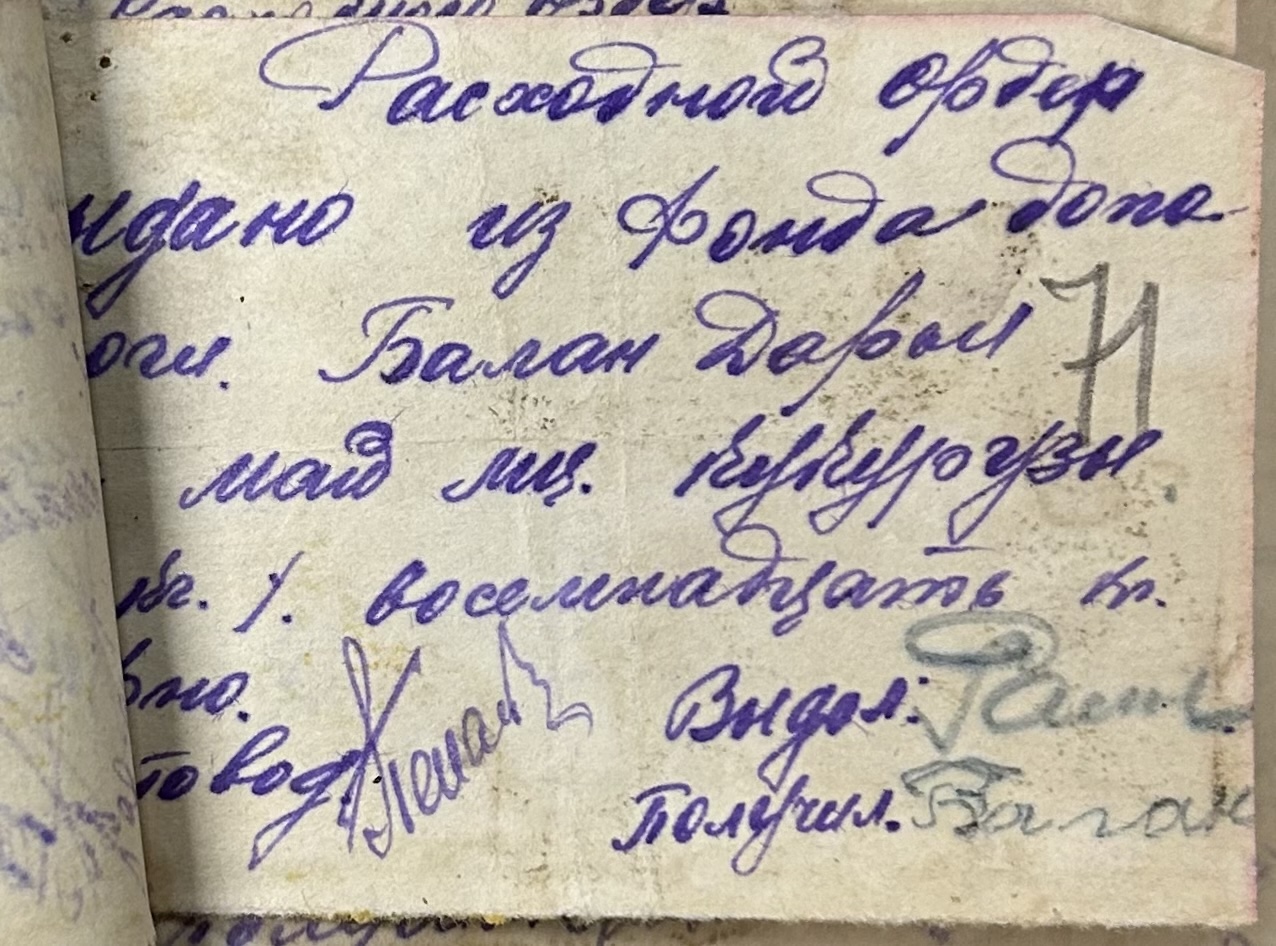 Расходной ордер
ыдано из фонда допо-
огл. Балан Дарыя
71
май мц. кукурузы
кг. /. восемнадцать кг.
рно.
товод
Выдал:
Получил. Балан